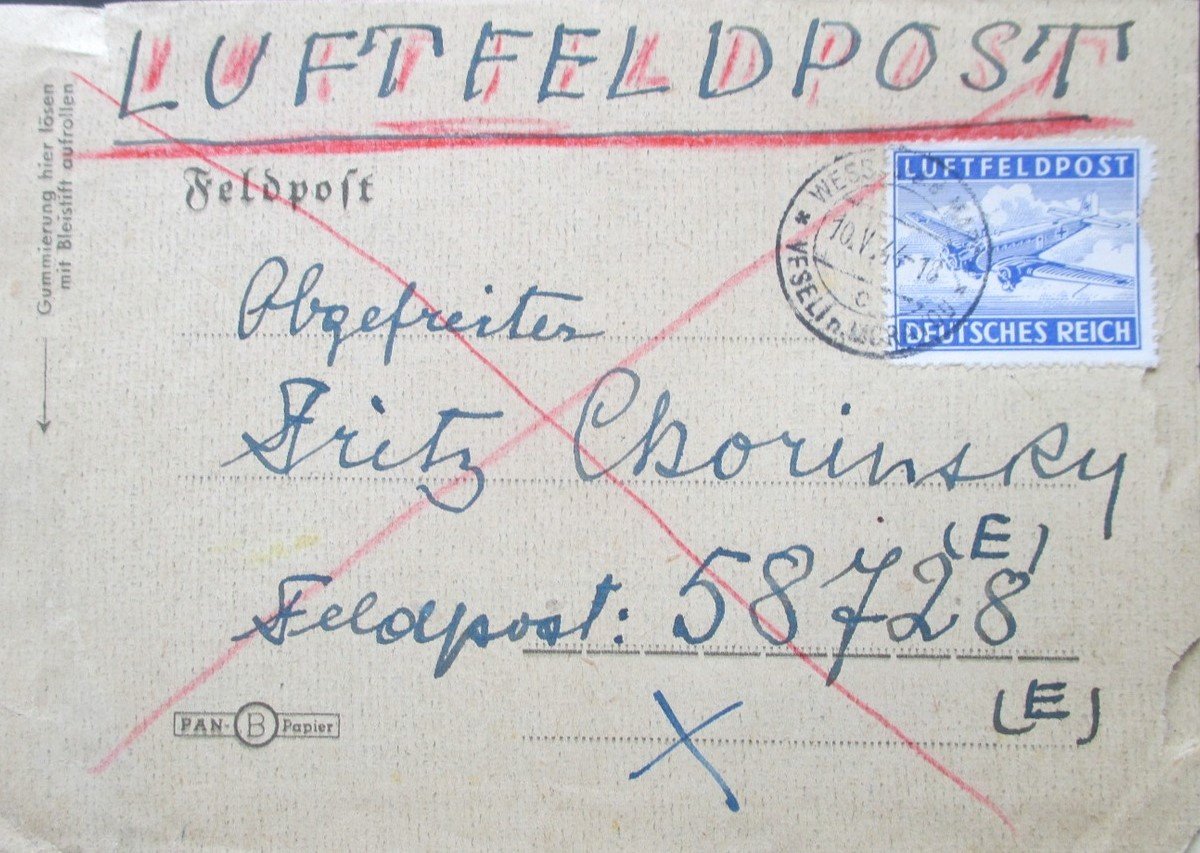 LUFTFELDPOST
Gummierung hier lösen
mit Bleistift aufrollen
Feldpost
LUFTFELDPOST
DEUTSCHES REICH
10.V.44-18
VESELI n. MOR.
Obgefreiter
Fritz Chorinsky
(E)
Feldpost: 58728
(E)
PAN-B Papier